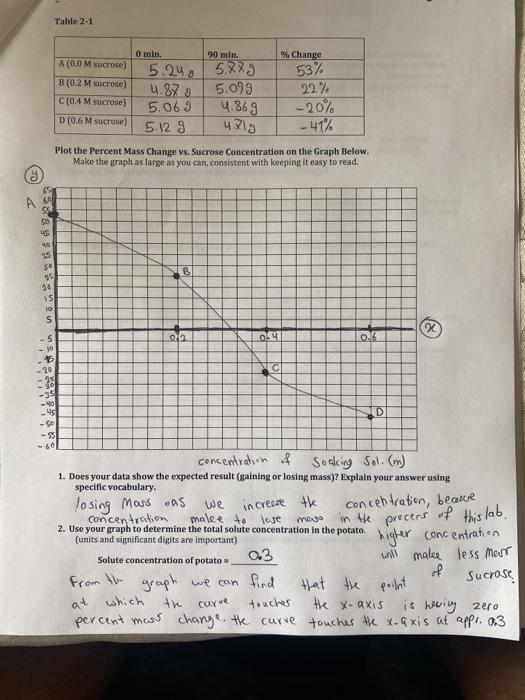 Table 2-1
0 min. 90 min. % Change
A (0.0 M sucrose) 5.24 g 5.77g 53%
B (0.2 M sucrose) 4.87 g 5.09g 22%
C (0.4 M sucrose) 5.06 g 4.86g -20%
D (0.6 M sucrose) 5.12 g 4.71g -41%
Plot the Percent Mass Change vs. Sucrose Concentration on the Graph Below.
Make the graph as large as you can, consistent with keeping it easy to read.
y
A
65
60
55
50
45
40
35
30
25
20
15
10
5
B
0.2 0.4 0.6 x
-5
-10
-15
-20
C
-25
-30
-35
-40
-45
D
-50
-55
-60
concentration of Soaking Sol. (m)
1. Does your data show the expected result (gaining or losing mass)? Explain your answer using
specific vocabulary.
losing Mass as we increase the concentration, because
concentration makee to lose mass in the process of this lab.
2. Use your graph to determine the total solute concentration in the potato. higher concentration
(units and significant digits are important) will makee less Mass
Solute concentration of potato = 0.3 of sucrose
From the graph we can find that the point
at which the curve touches the x-axis is having zero
percent mass change. the curve touches the x-axis at appr. 0.3